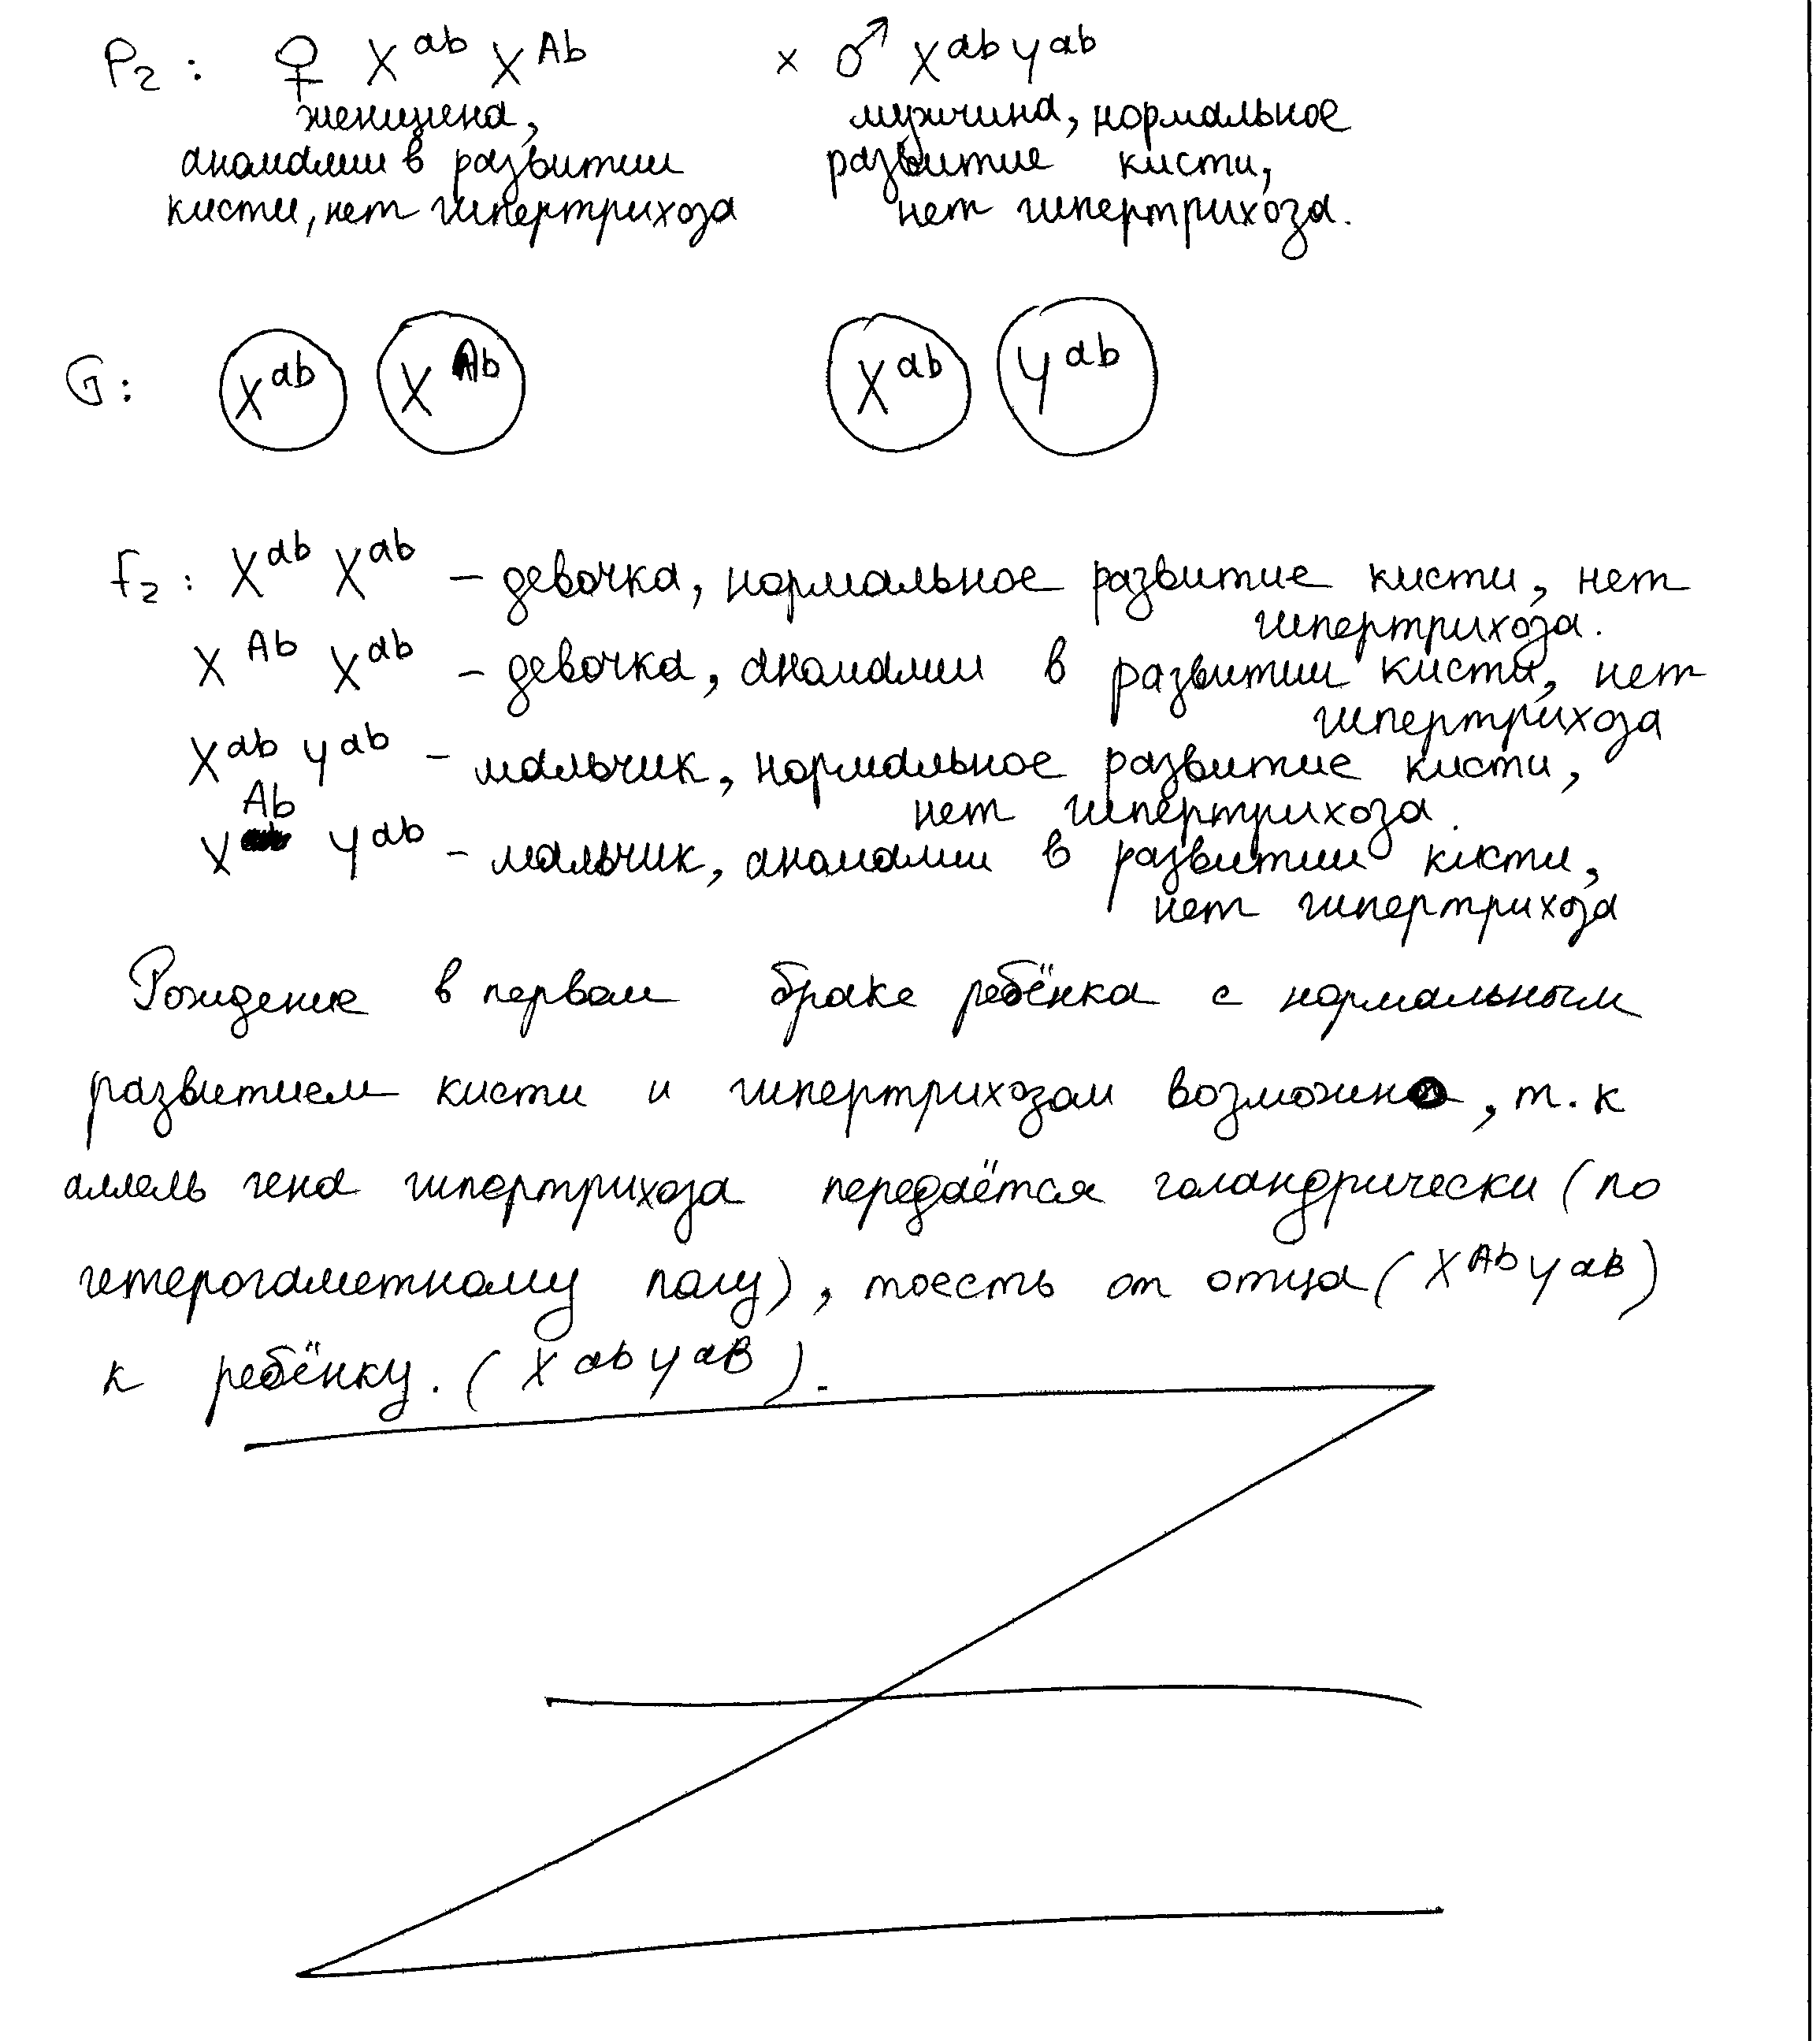 P₂: ♀ Xᵃᵇ Xᴬᵇ × ♂ Xᵃᵇ Yᵃᵇ
женщина, мужчина, нормальное
аномалии в развитии развитие кисти,
кисти, нет гипертрихоза нет гипертрихоза.
G: Xᵃᵇ Xᴬᵇ Xᵃᵇ Yᵃᵇ
F₂: Xᵃᵇ Xᵃᵇ – девочка, нормальное развитие кисти, нет
гипертрихоза.
Xᴬᵇ Xᵃᵇ – девочка, аномалии в развитии кисти, нет
гипертрихоза
Xᵃᵇ Yᵃᵇ – мальчик, нормальное развитие кисти,
нет гипертрихоза.
Xᴬᵇ Yᵃᵇ – мальчик, аномалии в развитии кисти,
нет гипертрихоза
Рождение в первом браке ребёнка с нормальным
развитием кисти и гипертрихозом возможно, т.к
аллель гена гипертрихоза передаётся голандрически (по
гетерогаметному полу), тоесть от отца (Xᴬᵇ Yᵃᴮ)
к ребёнку. (Xᵃᵇ Yᵃᴮ).